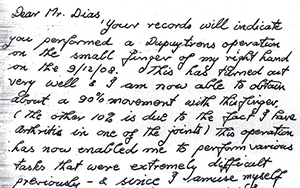 Dear Mr. Dias
Your records will indicate
you performed a Dupuytrons operation
on the small finger of my right hand
on the 9/12/08. This has turned out
very well & I am now able to obtain
about a 90% movement with this finger.
(the other 10% is due to the fact I have
Arthritis in one of the joint) This operation
has now enabled me to perform various
tasks that were extremely difficult
previously - & since I amuse myself